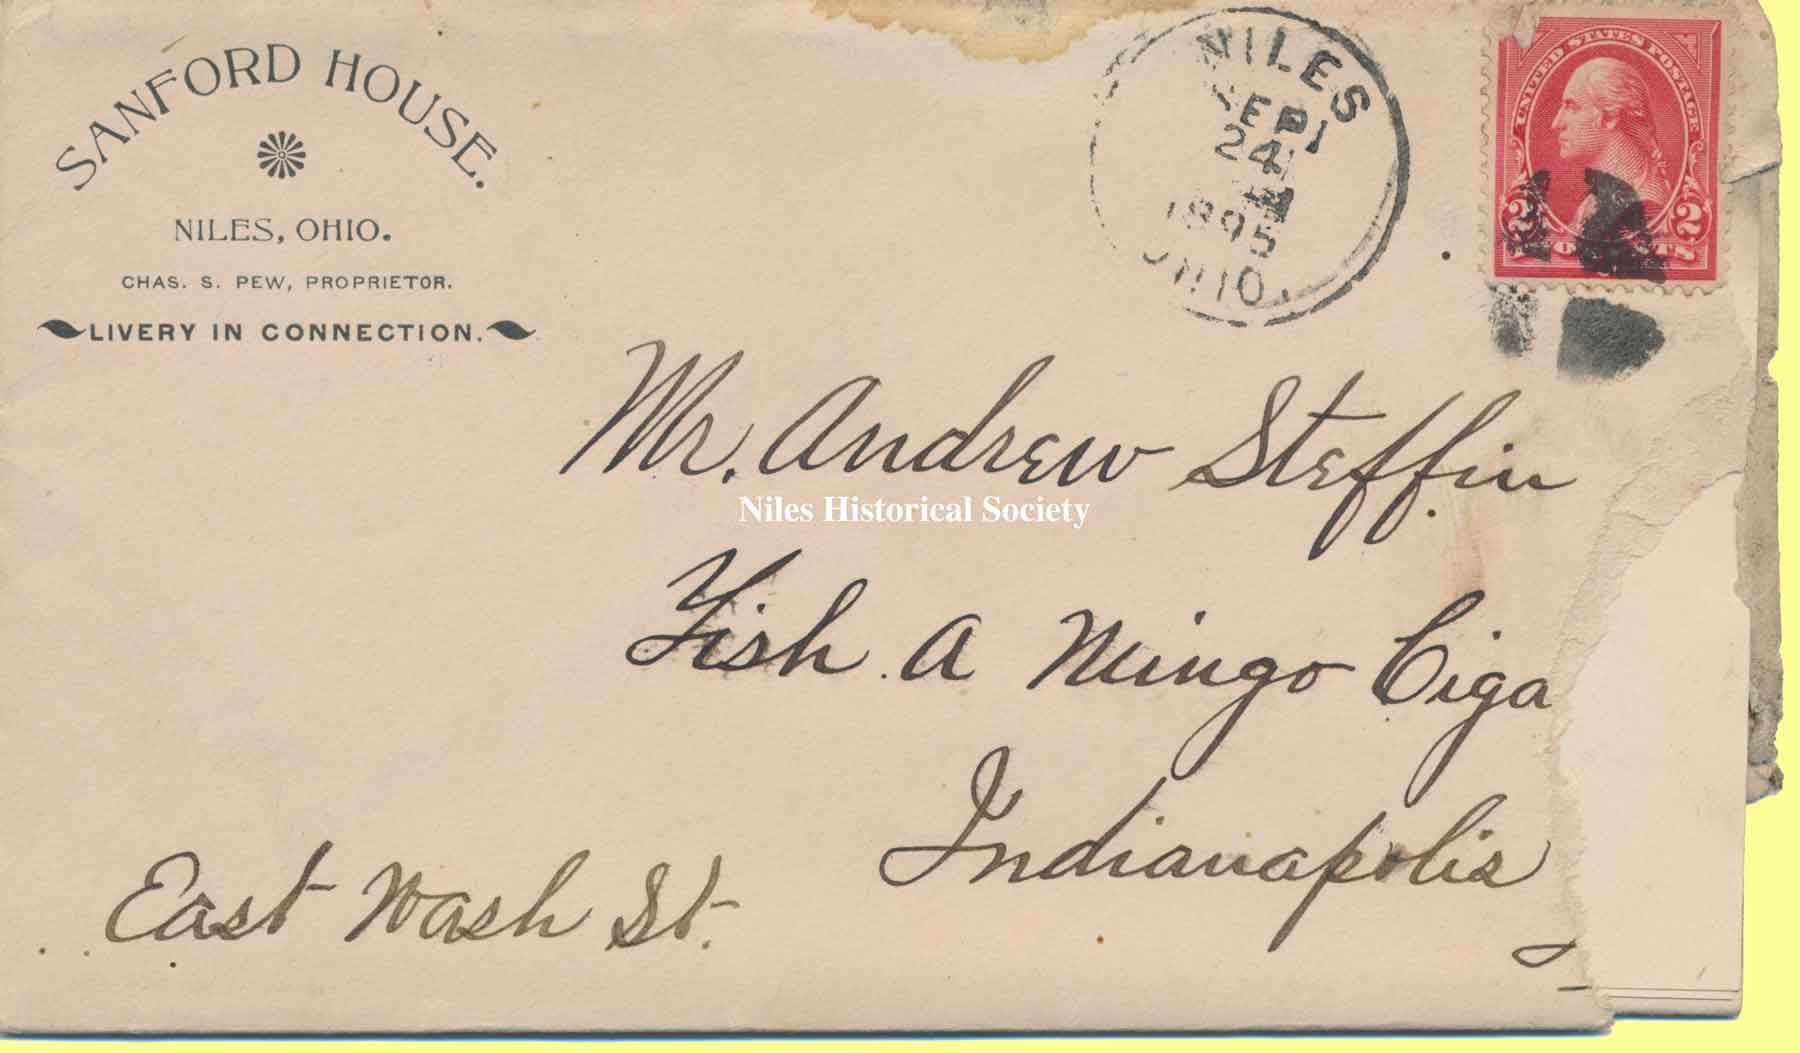 SANFORD HOUSE.
NILES, OHIO.
CHAS. S. PEW, PROPRIETOR.
LIVERY IN CONNECTION.
NILES
SEP
24
1895
OHIO.
UNITED STATES POSTAGE
2 2
Mr. Andrew Steffin
Niles Historical Society
Fish A Mingo Ciga
Indianapolis
East Wash St.